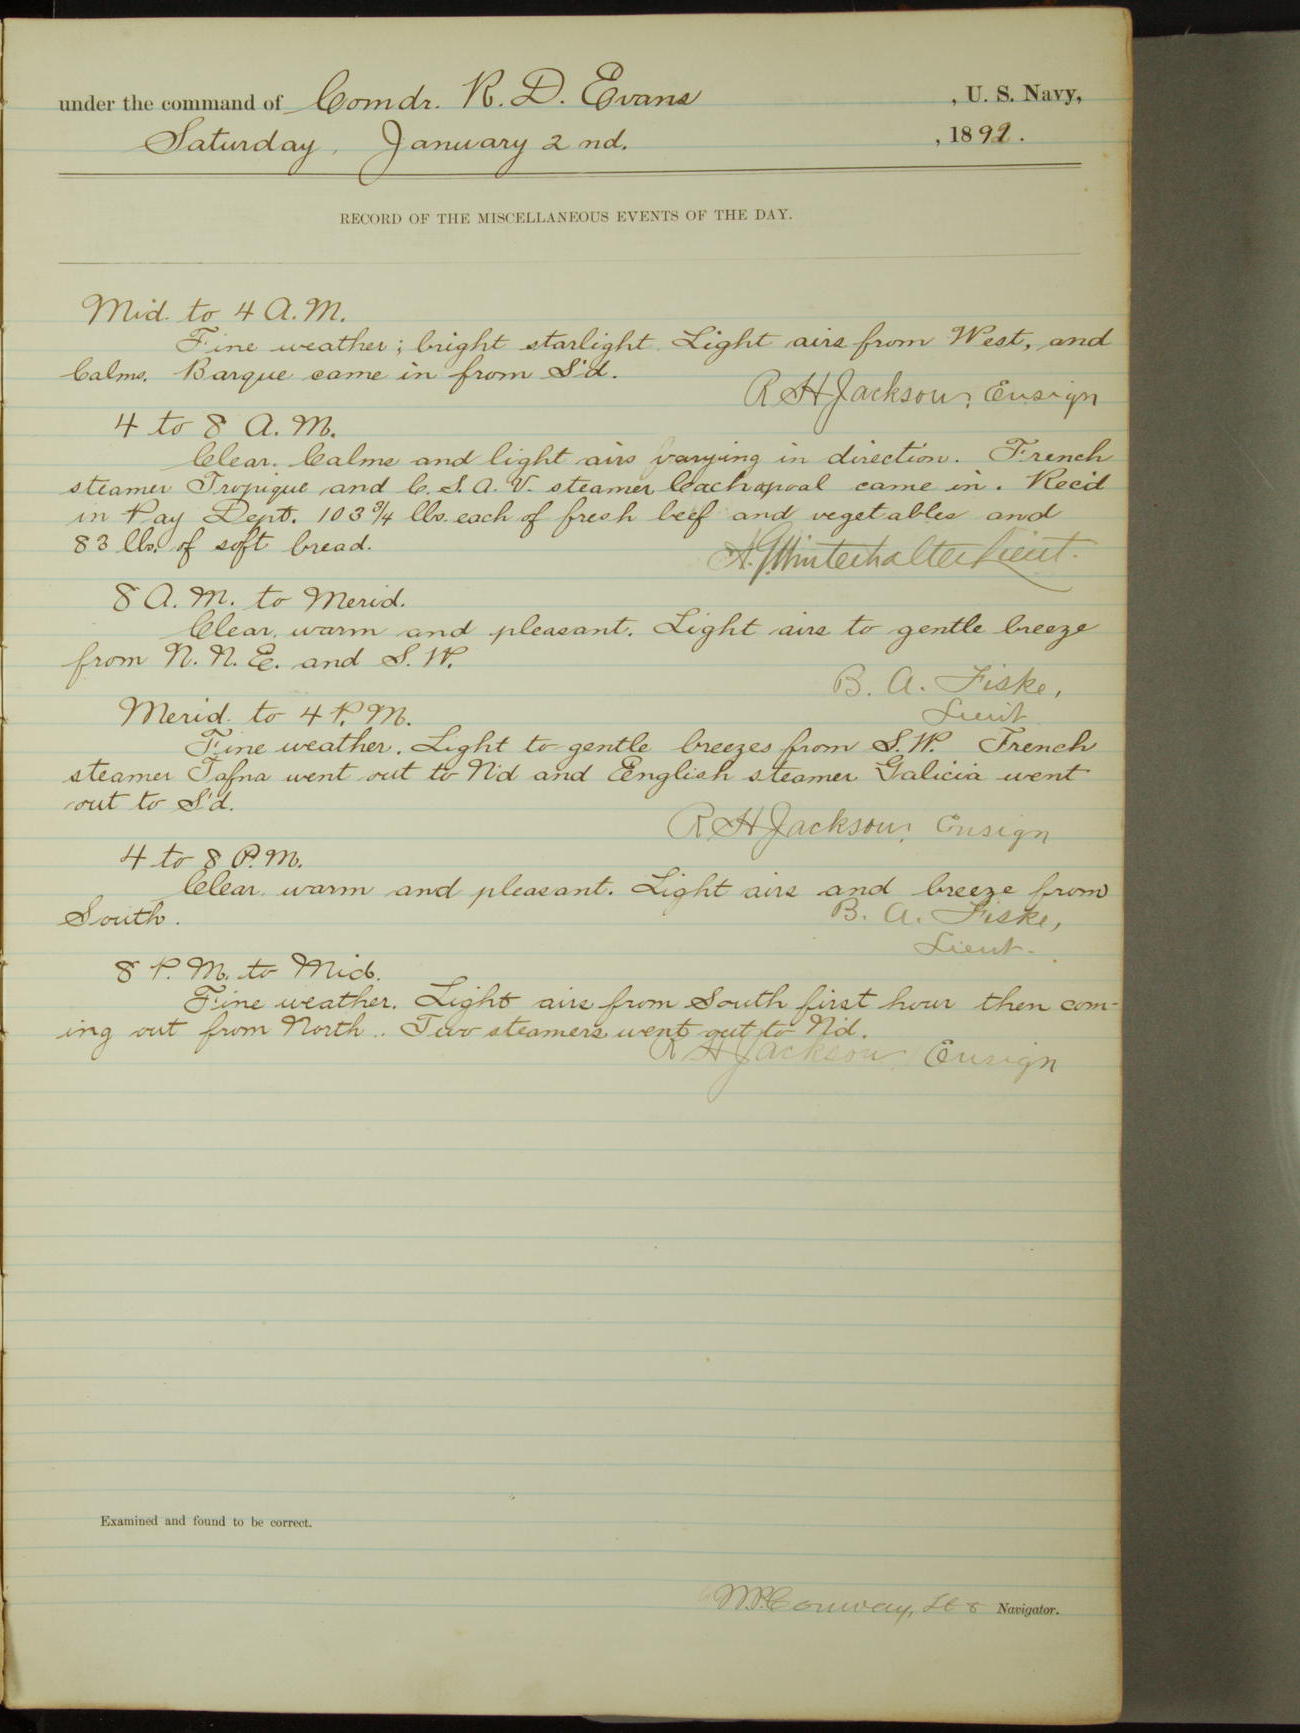 under the command of Comdr. R. D. Evans , U. S. Navy,
Saturday, January 2nd. , 1892.
RECORD OF THE MISCELLANEOUS EVENTS OF THE DAY.
Mid. to 4 A.M.
Fine weather; bright starlight. Light airs from West, and
Calms. Barque came in from S'd.
R H Jackson, Ensign
4 to 8 A.M.
Clear. Calms and light airs varying in direction. French
steamer Tropique and C.S.A.V. steamer Cachapoal came in. Rec'd
in Pay Dept. 103 3/4 lbs. each of fresh beef and vegetables and
83 lbs. of soft bread.
A. G. Winterhalter Lieut.
8 A.M. to Merid.
Clear, warm and pleasant. Light airs to gentle breeze
from N.N.E. and S.W.
B. A. Fiske,
Lieut.
Merid. to 4 P.M.
Fine weather. Light to gentle breezes from S.W. French
steamer Tafna went out to N'd and English steamer Galicia went
out to S'd.
R. H Jackson, Ensign
4 to 8 P.M.
Clear, warm and pleasant. Light airs and breeze from
South.
B. A. Fiske,
Lieut.
8 P.M. to Mid.
Fine weather. Light airs from South first hour then com-
ing out from North. Two steamers went out to N'd.
R H Jackson Ensign
Examined and found to be correct.
W.P. Conway, Lt & Navigator.